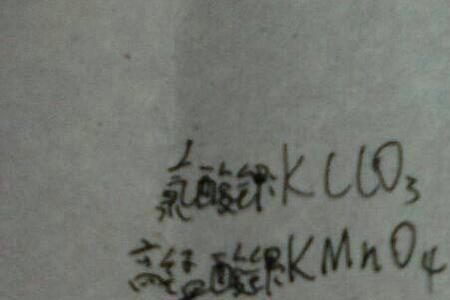 氯酸钾KClO3
高锰酸钾KMnO4